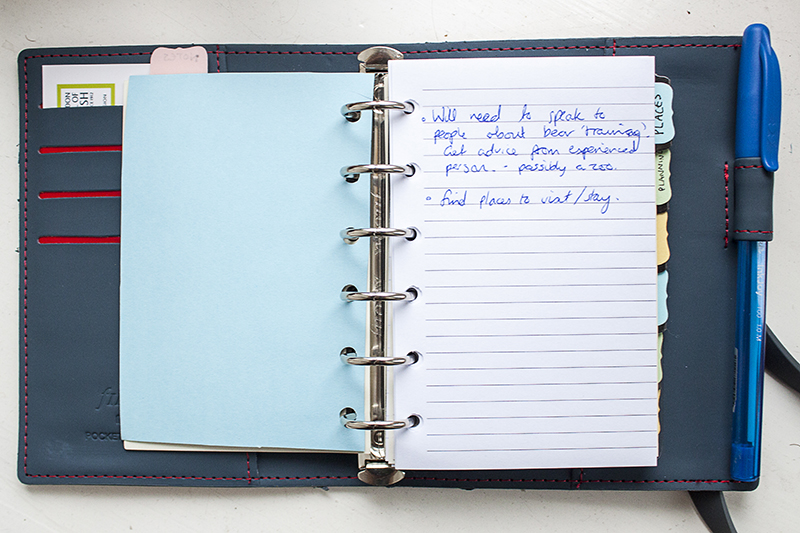 NOTES
HS
PLACES
PLANNING
• Will need to speak to
people about bear 'training'.
Get advice from experienced
person. - possibly a zoo.
• Find places to visit/stay.
POCKET